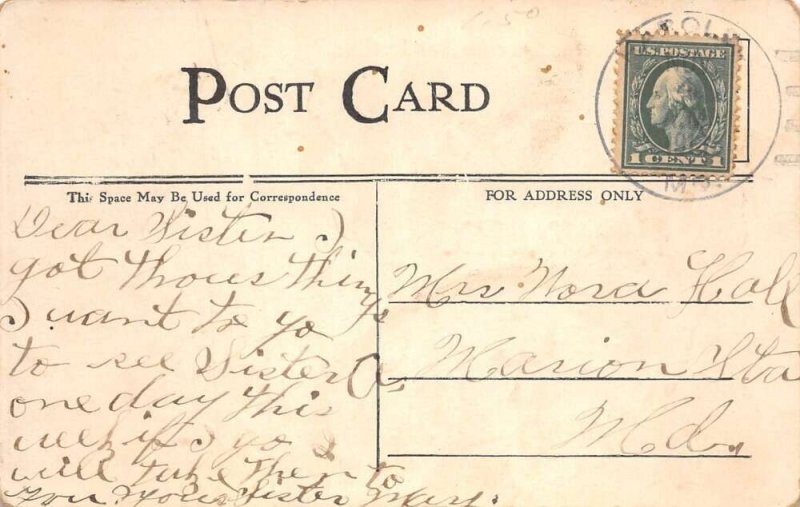 POST CARD
U.S. POSTAGE
1 CENT 1
This Space May Be Used for Correspondence
FOR ADDRESS ONLY
Dear Sister I
got thous things
I want to go
to see Sister
one day this
week if I go
will take them to
you. Your Sister Mary.
Mrs Nora Hall
Marion Sta
Md.